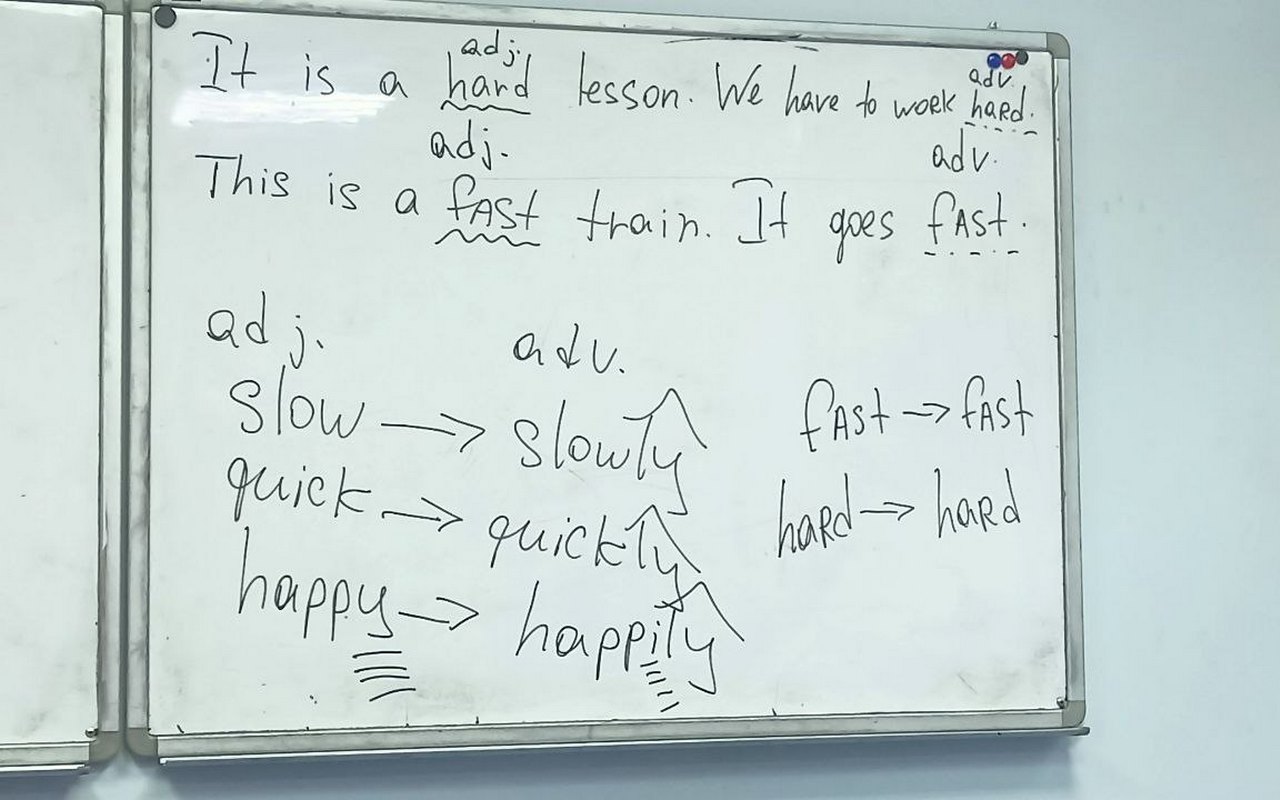 adj.
It is a hard lesson. We have to work hard.
adv.
adj.
adv.
This is a fast train. It goes fast.
adj. adv.
slow → slowly
quick → quickly
happy → happily
fast → fast
hard → hard